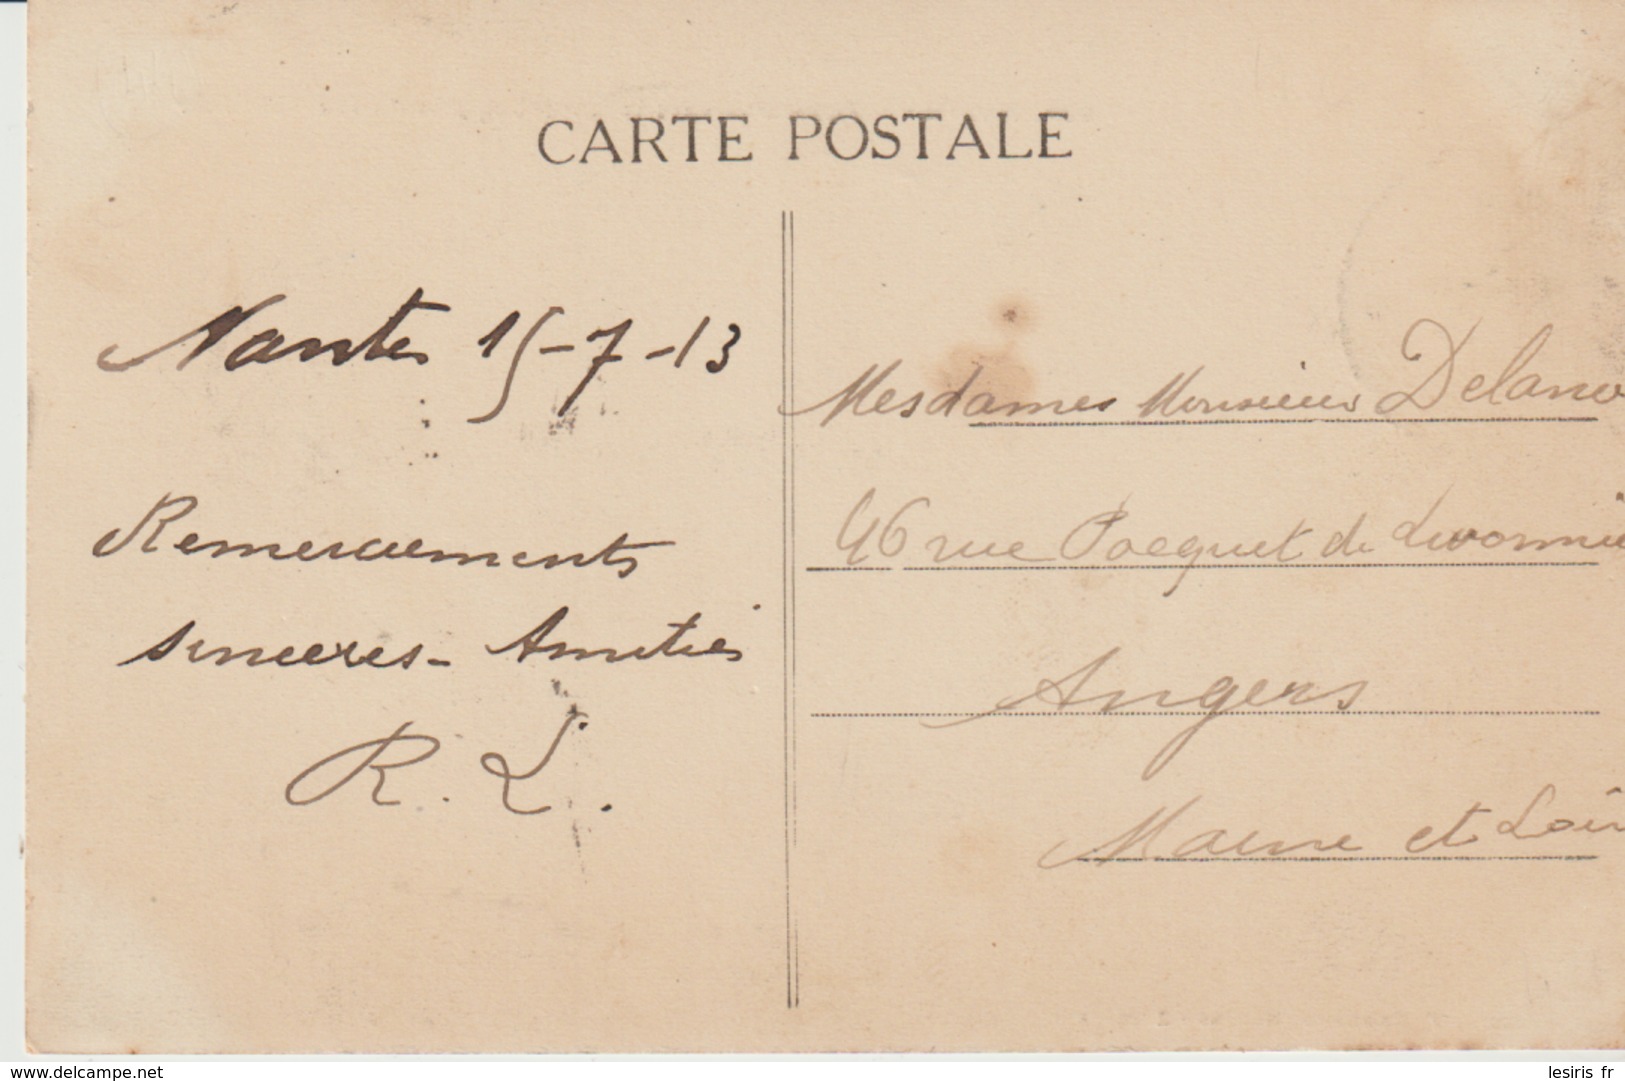 CARTE POSTALE
Nantes 15-7-13
Remerciements
sincères - Amitiés
R. L.
Mesdames Monsieur Delano
46 rue Pocquet de Livonniè
Angers
Maine et Loir
www.delcampe.net
lesiris fr